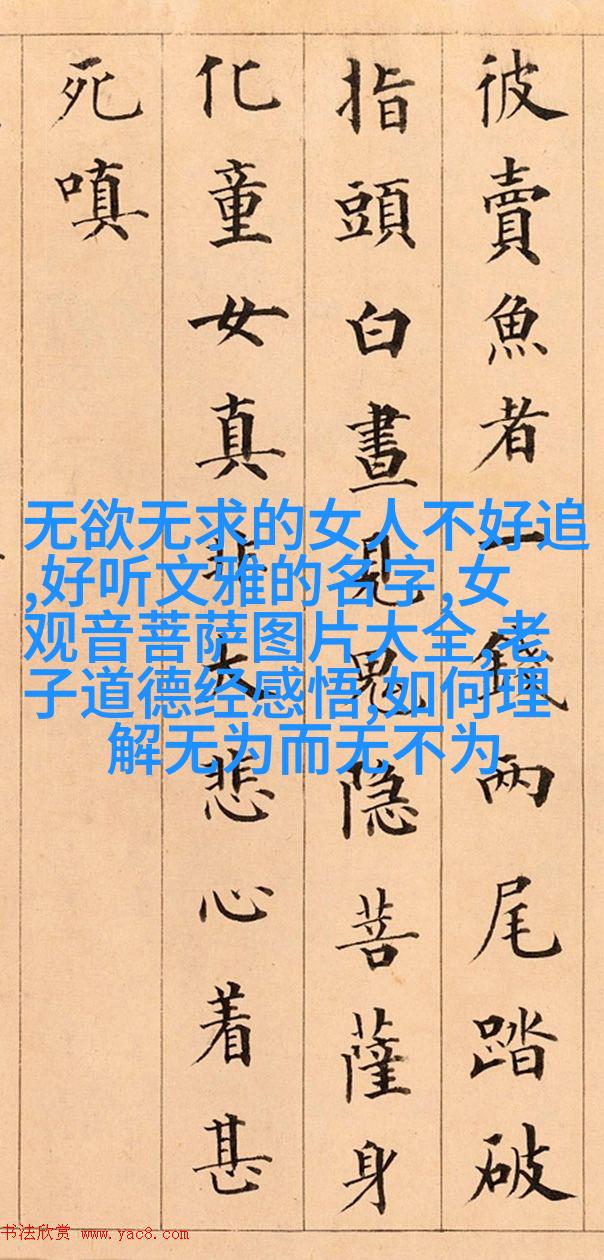 彼賣魚者一錢兩尾踏破
指頭白晝見鬼隐菩薩身
化童女真非大悲心着甚
死嗔
无欲无求的女人不好追
,好听文雅的名字,女
观音菩萨图片大全,老
子道德经感悟,如何理
解无为而无不为
书法欣赏 www.yac8.com